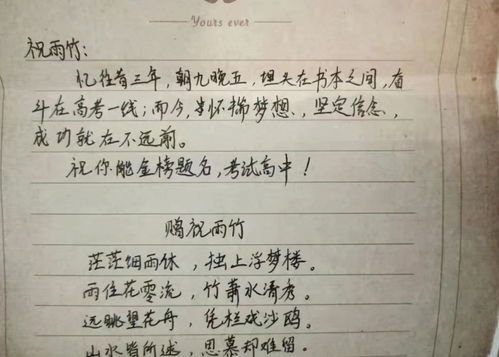 Yours ever
祝雨竹:
忆往昔三年，朝九晚五，埋头在书本之间，奋
斗在高考一线；而今，半怀揣梦想，坚定信念，
成功就在不远前。
祝你能金榜题名，考试高中！
赐祝雨竹
茫茫细雨休，独上浮梦楼。
雨住花零流，竹萧水清秀。
远眺望花舟，凭栏戏沙鸥。
山水皆所述，思慕却难留。